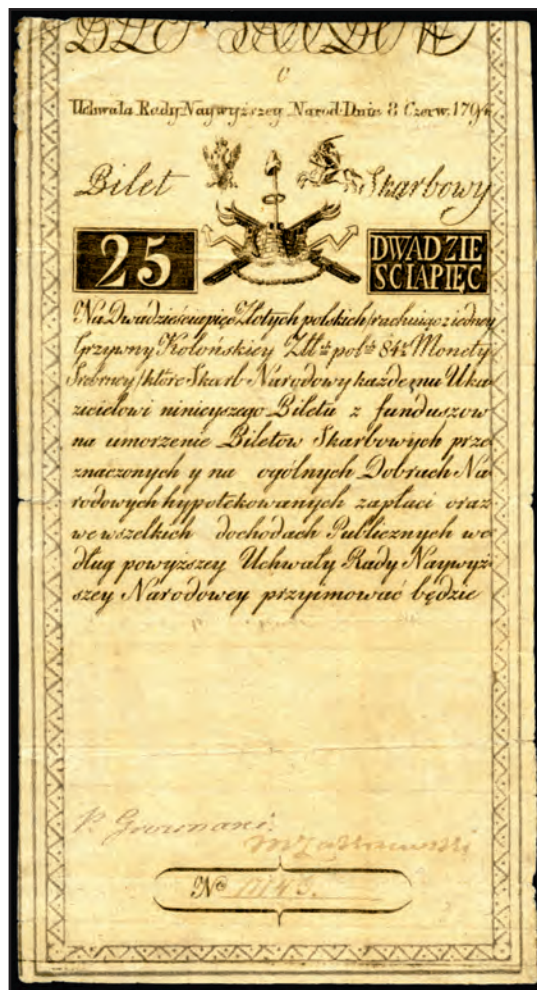 C
Uchwała Rady Naywyższey Narod: Dnia 8 Czerw: 1794
Bilet Skarbowy
25 DWADZIE
SCIAPIĘC
Na Dwadzieściapięć Złotych polskich/rachuiąc z iedney
Grzywny Kolońskiey Złł: pol: 84½ Monety
Srebrney/ które Skarb Narodowy każdemu Uka
zicielowi ninieyszego Biletu z funduszow
na umorzenie Biletow Skarbowych prze
znaczonych y na ogólnych Dobrach Na
rodowych hypotekowanych zapłaci oraz
we wszelkich dochodach Publicznych we
dług powyższey Uchwały Rady Naywyż
szey Narodowey przyimować będzie
No